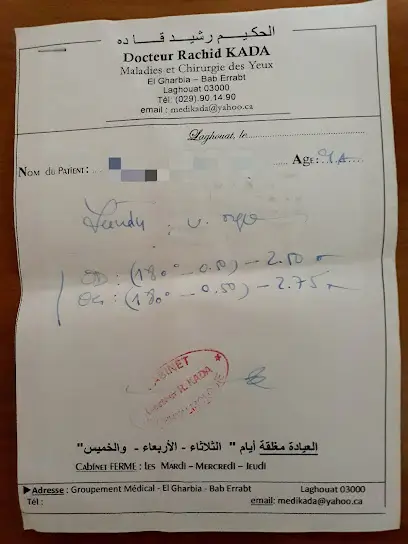 الحكيم رشيد قاده
Docteur Rachid KADA
Maladies et Chirurgie des Yeux
El Gharbia – Bab Errabt
Laghouat 03000
Tél: (029).90.14.90
email : medikada@yahoo.ca
Laghouat, le
Nom du Patient : Age :
OD : (180° - 0.50) - 2.50
OG : (180° - 0.50) - 2.75
CABINET
R. KADA
العيادة مغلقة أيام " الثلاثاء - الأربعاء - والخميس"
Cabinet FERME : Les Mardi – Mercredi – Jeudi
Adresse : Groupement Médical - El Gharbia - Bab Errabt Laghouat 03000
Tél : email: medikada@yahoo.ca